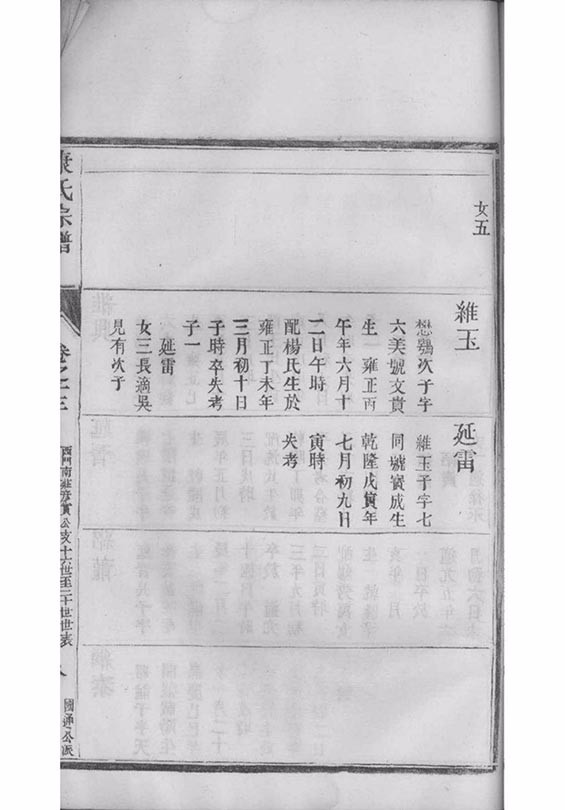 女五
維玉
懋鸚次子字
六美號文賁
生 雍正丙
午年六月十
二日午時
配楊氏生於
雍正丁未年
三月初十日
子時卒失考
子一
延雷
女三長適吳
見有次于
延雷
維玉子字七
同號賓成生
乾隆戊寅年
七月初九日
寅時
失考
康氏宗譜
卷之三
西門南莊彥賓公支十六世至二十世世表
八
國通公派